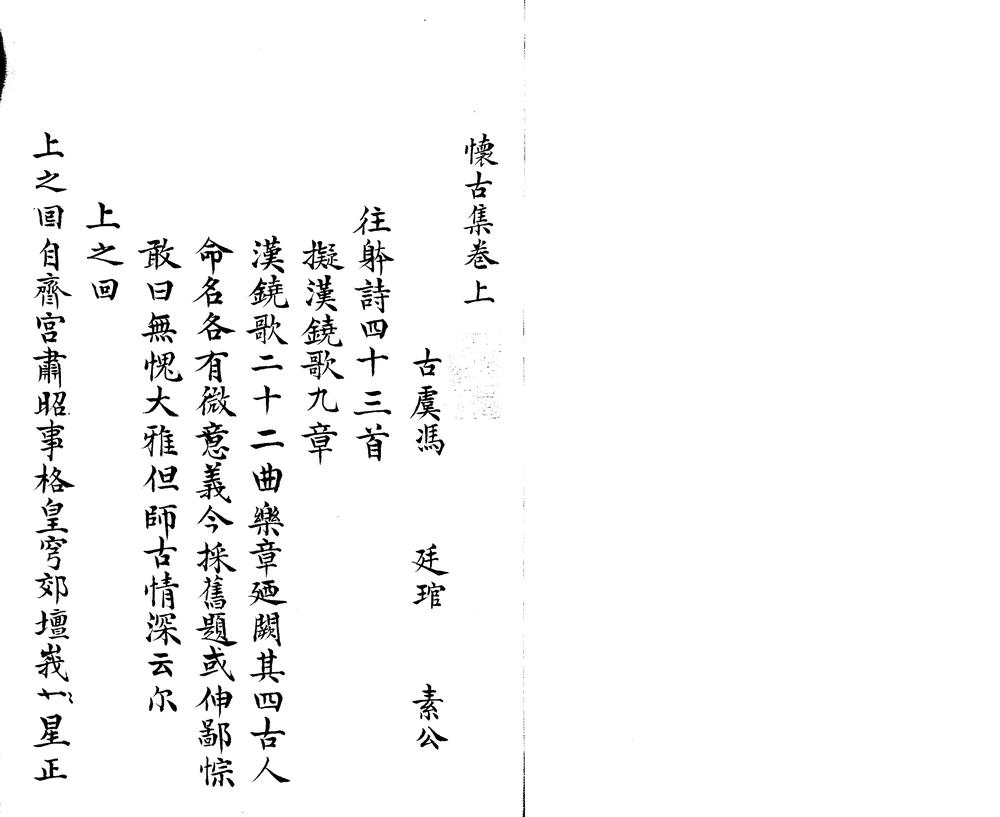 懷古集卷上
古虞馮　廷琯　素公
往躰詩四十三首
擬漢鐃歌九章
漢鐃歌二十二曲樂章廼闕其四古人
命名各有微意義今採舊題或伸鄙悰
敢曰無愧大雅但師古情深云尔
上之回
上之回自齊宮肅昭事格皇穹郊壇峩星正